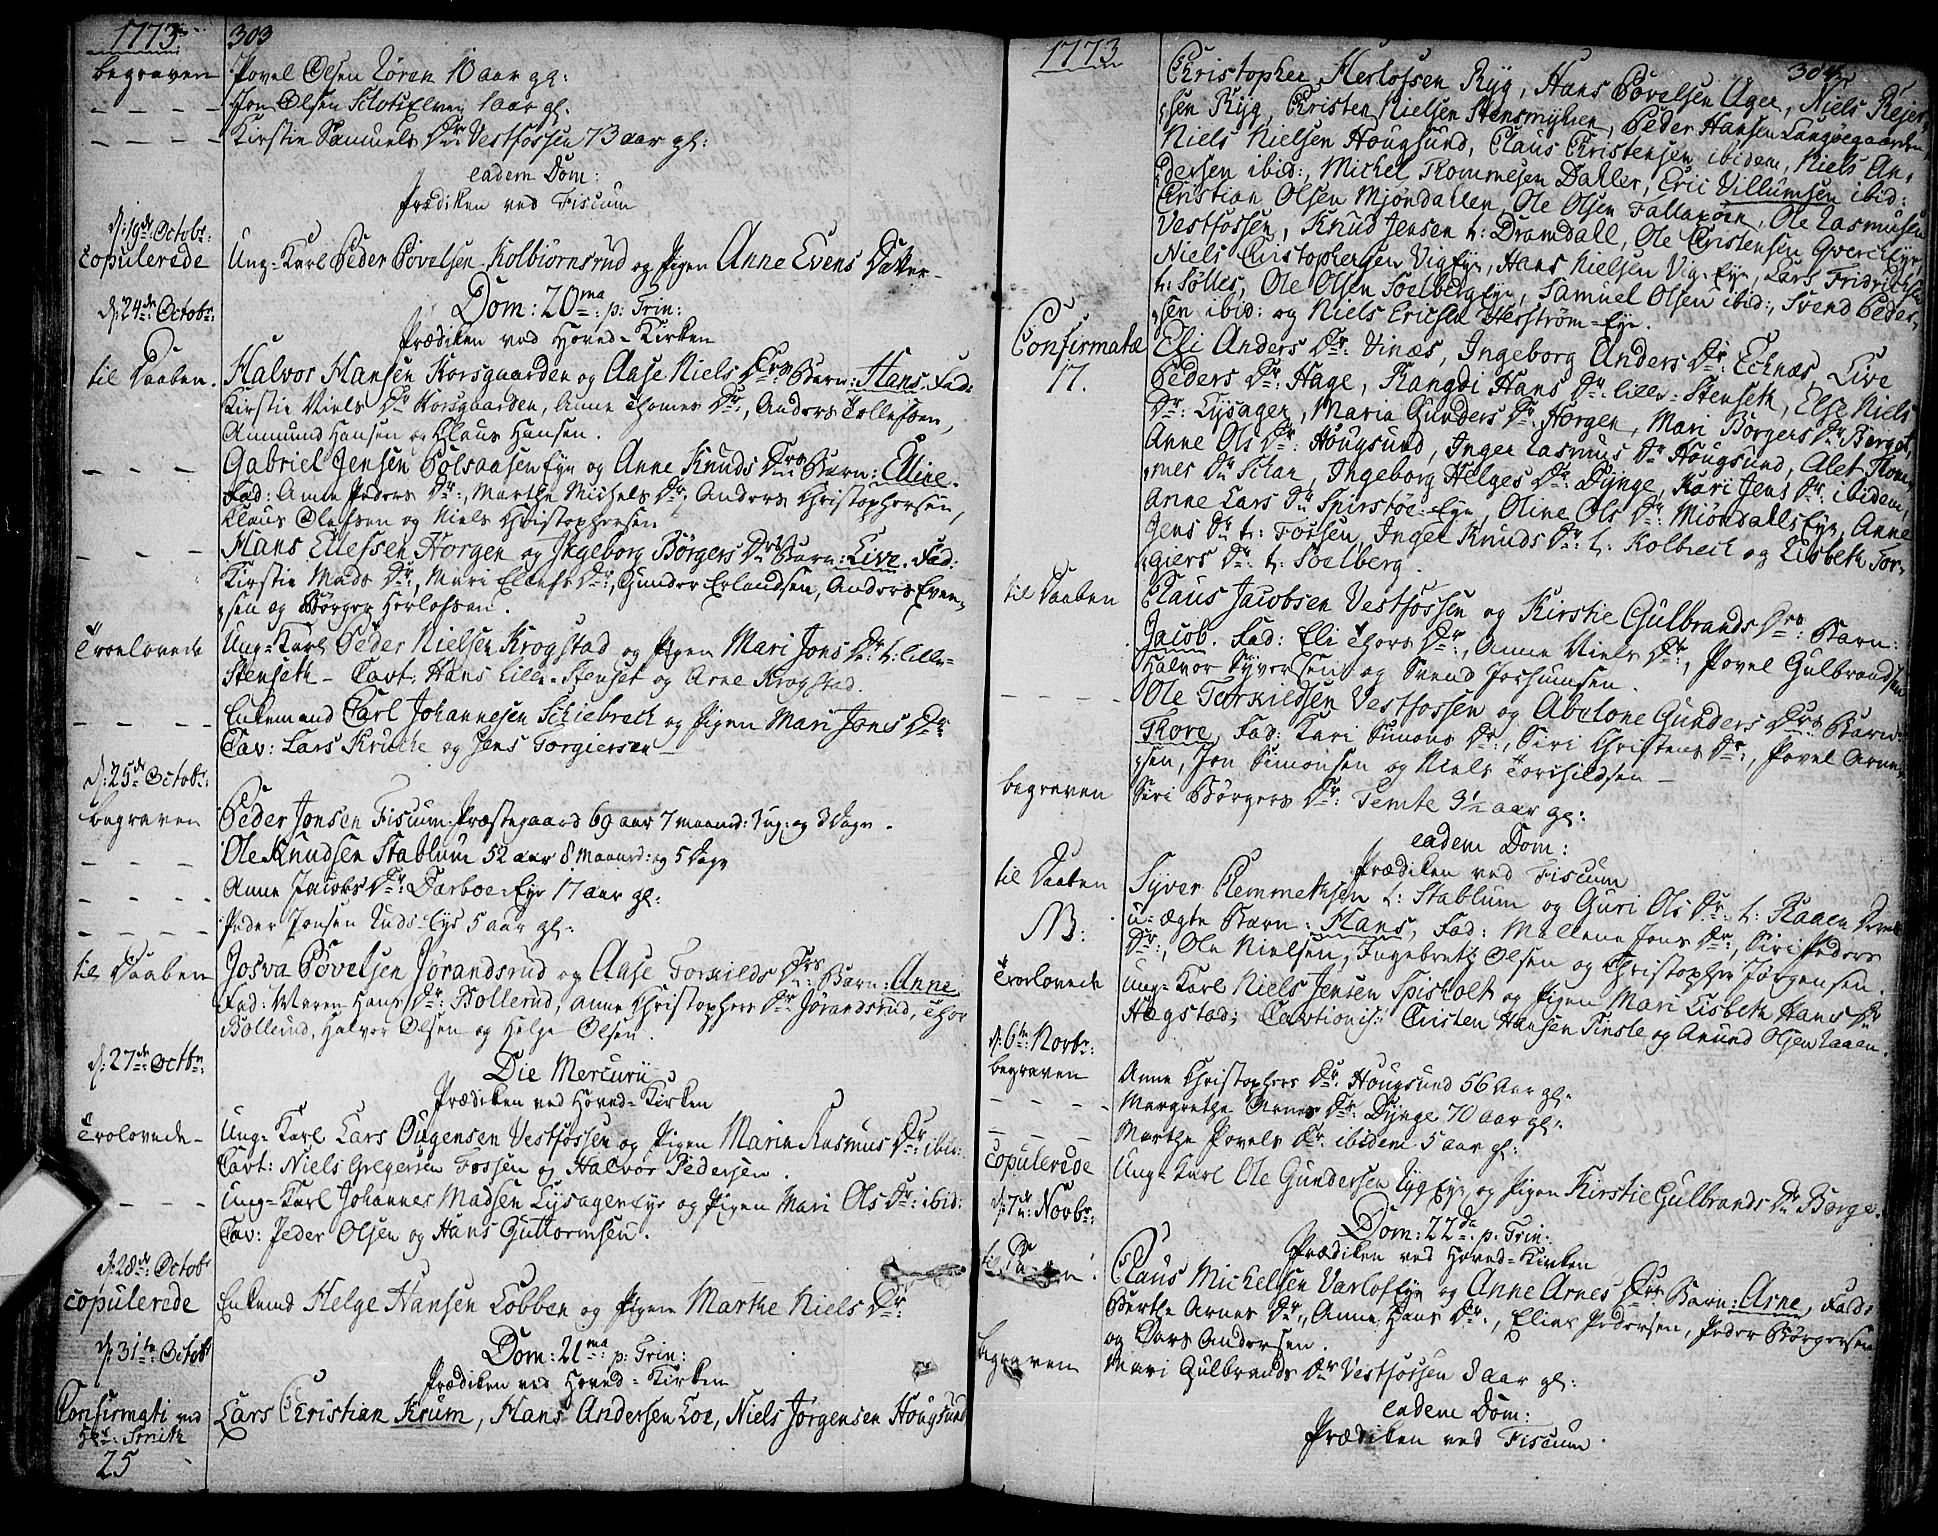 1773. 303
begraven Povel Olsen Røren 10 aar gl:
- - - - Jon Olsen SkotsElven 1 aar gl.
- - - - Kirstie Samuels Dr: Vestfossen 73 aar gl:
eadem Dom:
Prædiken ved Fiscum
d: 19de Octobr:
copulerede Ung-Karl Peder Povelsen Kolbiørnsrud og Pigen Anne Evens Daker -
d: 24de Octobr: Dom: 20ma: p: Trin:
Prædiken ved Hoved-Kirken
til Daaben. Halvor Hansen Korsgaarden og Aase Niels Drs Barn: Hans. Fad:
Kirstie Niels Dr Korsgaarden, Anne Thomes Dr:, Anders Tollefsen,
Anmund Hansen og Claus Hansen.
- - - - Gabriel Jensen PolsaasenEye og Anne Knuds Drs Barn: Elline.
Fad: Anne Peders Dr:, Marthe Michels Dr: Anders Christophersen,
Klaus Olufsen og Niels Christophersen
- - - - Hans Ellefsen Horgen og Ingeborg Børgers Drs Barn: Live. Fad:
Kirstie Mads Dr:, Mari Ellefs Dr:, Gunder Erlandsen, Anders Even-
sen og Børger Herlofsen.
Troelovede Ung-Karl Peder Nielsen Krogstad og Pigen Mari Jons Dr: t: lille-
Stenseth - Cavt: Hans Lille-Stenset og Arne Krogstad.
- - - - Enkemand Carl Johannesen Schiebrech og Pigen Mari Jons Dr
Cav: Lars Krucke og Jens Torgiersen -
d: 25de Octobr:
begraven Peder Jonsen Fiscum-Præstegaard 69 aar 7 maand: 3 ug: og 3 Dage.
- - - - Ole Knudsen Stablum 52 aar 8 Maand: og 5 Dage
- - - - Anne Jacobs Dr: Darboe-Eye 17 aar gl:
- - - - Peder Jonsen Ruds-Eye 5 aar gl:
til Daaben Josva Povelsen Jørandsrud og Aase Torkilds Drs Barn: Anne
Fad: Maren Hans Dr: Bollerud, Anne Christophers Dr: Jørandsrud, Thor
Bollerud, Halvor Olsen og Helge Olsen.
d: 27de: Octbr: Die Mercurii
Prædiken ved Hoved-Kirken
Trolovede- Ung-Karl Lars Ougensen Vestfossen og Pigen Maria Rasmus Dr: ibid:
Cavt: Niels Gregersen Fossen og Halvor Pedersen.
- - - Ung-Karl Johannes Madsen LysagerEye og Pigen Mari Ols Dr: ibid:
Cav: Peder Olsen og Hans Guttormsen.
d: 28de: Octobr
copulerede Enkemd Helge Hansen Lobben og Pigen Marthe Niels Dr:
d: 31te: Octobr Dom: 21ma: p: Trin:
Prædiken ved Hoved-Kirken
Confirmati ved Lars Christian Krum, Hans Andersen Loe, Niels Jørgensen Hougsund
Hr: Smith
25
1773 304
Christopher Herlofsen Ryg, Hans Povelsen Ager, Niels Rejer-
sen Ryg, Christen Nielsen Stensmyhren, Peder Hansen Langøegaarden
Niels Nielsen Hougsund, Claus Christensen ibidem, Niels An-
dersen ibid:, Michel Thommesen Dahler, Eric Villumsen ibid:
Christian Olsen Mjøndallen, Ole Olsen Fallaxøen, Ole Rasmusen
Vestfossen, Knud Jensen t: Dramdall, Ole Christensen QverkEye,
Niels Christophersen VigEye, Hans Nielsen Vig-Eye, Lars Fridrichsen
t: Sølles, Ole Olsen SoelbergEye, Samuel Olsen ibid:, Svend Peder-
sen ibid: og Niels Ericsen Herstrøm-Eye.
Confirmatæ Eli Anders Dr: Vinæs, Ingeborg Anders Dr: Echnæs, Live
17. Peders Dr: Hage, Rangdi Hans Dr: lille-Stenseth, Else Niels
Dr: Lysager, Maria Gunders Dr Horgen, Mari Børgers Dr Berget,
Anne Ols Dr: Hougsund, Inger Rasmus Dr Hougsund, Alet Thom-
mes Dr Skar, Ingeborg Helges Dr: Dynge, Kari Jens Dr: ibidem,
Anne Lars Dr Spirstøe-Eye, Oline Ols Dr: MiøndallsEye, Anne
Jens Dr t: Fossen, Inger Knuds Dr: t: Kolbrech og Lisbeth Tor-
giers Dr: t: Soelberg.
til Daaben Claus Jacobsen Vestfossen og Kirstie Gulbrands Drs: Barn:
Jacob. Fad: Eli Thors Dr:, Anne Niels Dr:, Povel Gulbrandsen
Halvor Syversen og Svend Joshumsen.
- - - Ole Torkildsen Vestfossen og Abelone Gunders Drs Barn:
Thore, Fad: Kari Simons Dr:, Siri Christens Dr:, Povel Arne-
sen, Jon Simonsen og Niels Torchildsen -
begraven Siri Børgers Dr: Temte 3½ aar gl:
eadem Dom:
Prædiken ved Fiscum
til Daaben Syver Clemmethsen t: Stablum og Guri Ols Dr: t: Raaen
NB: u-ægte Barn: Hans, Fad: Mallene Jens Dr:, Siri Peders
Dr:, Ole Nielsen, Ingebreth Olsen og Christopher Jørgensen.
Trolovede Ung-Karl Niels Jensen Spisholt og Pigen Mari Lisbeth Hans Dr
Hogstad; Cavtionis: Cristen Hansen Tinsle og Anund Olsen Raaen.
d: 6te: Novbr:
begraven Anne Christophers Dr: Hougsund 56 Aar gl:
- - - - Margrethe Arnes Dr: Dynge 70 aar gl:
- - - Marthe Povels Dr. ibidem 5 aar gl:
copulerede Ung-Karl Ole Gundersen RygEye og Pigen Kirstie Gulbrands Dr Borge.
d: 7de: Novbr: Dom: 22da: p: Trin:
Prædiken ved Hoved-Kirken
Claus Michelsen VarlofEye og Anne Arnes Drs Barn: Arne, Fad:
Berthe Arnes Dr:, Anne Hans Dr:, Elias Pedersen, Peder Børgersen
og Lars Andersen.
begraven Mari Gulbrands Dr Vestfossen 8 aar gl:
eadem Dom:
Prædiken ved Fiscum.